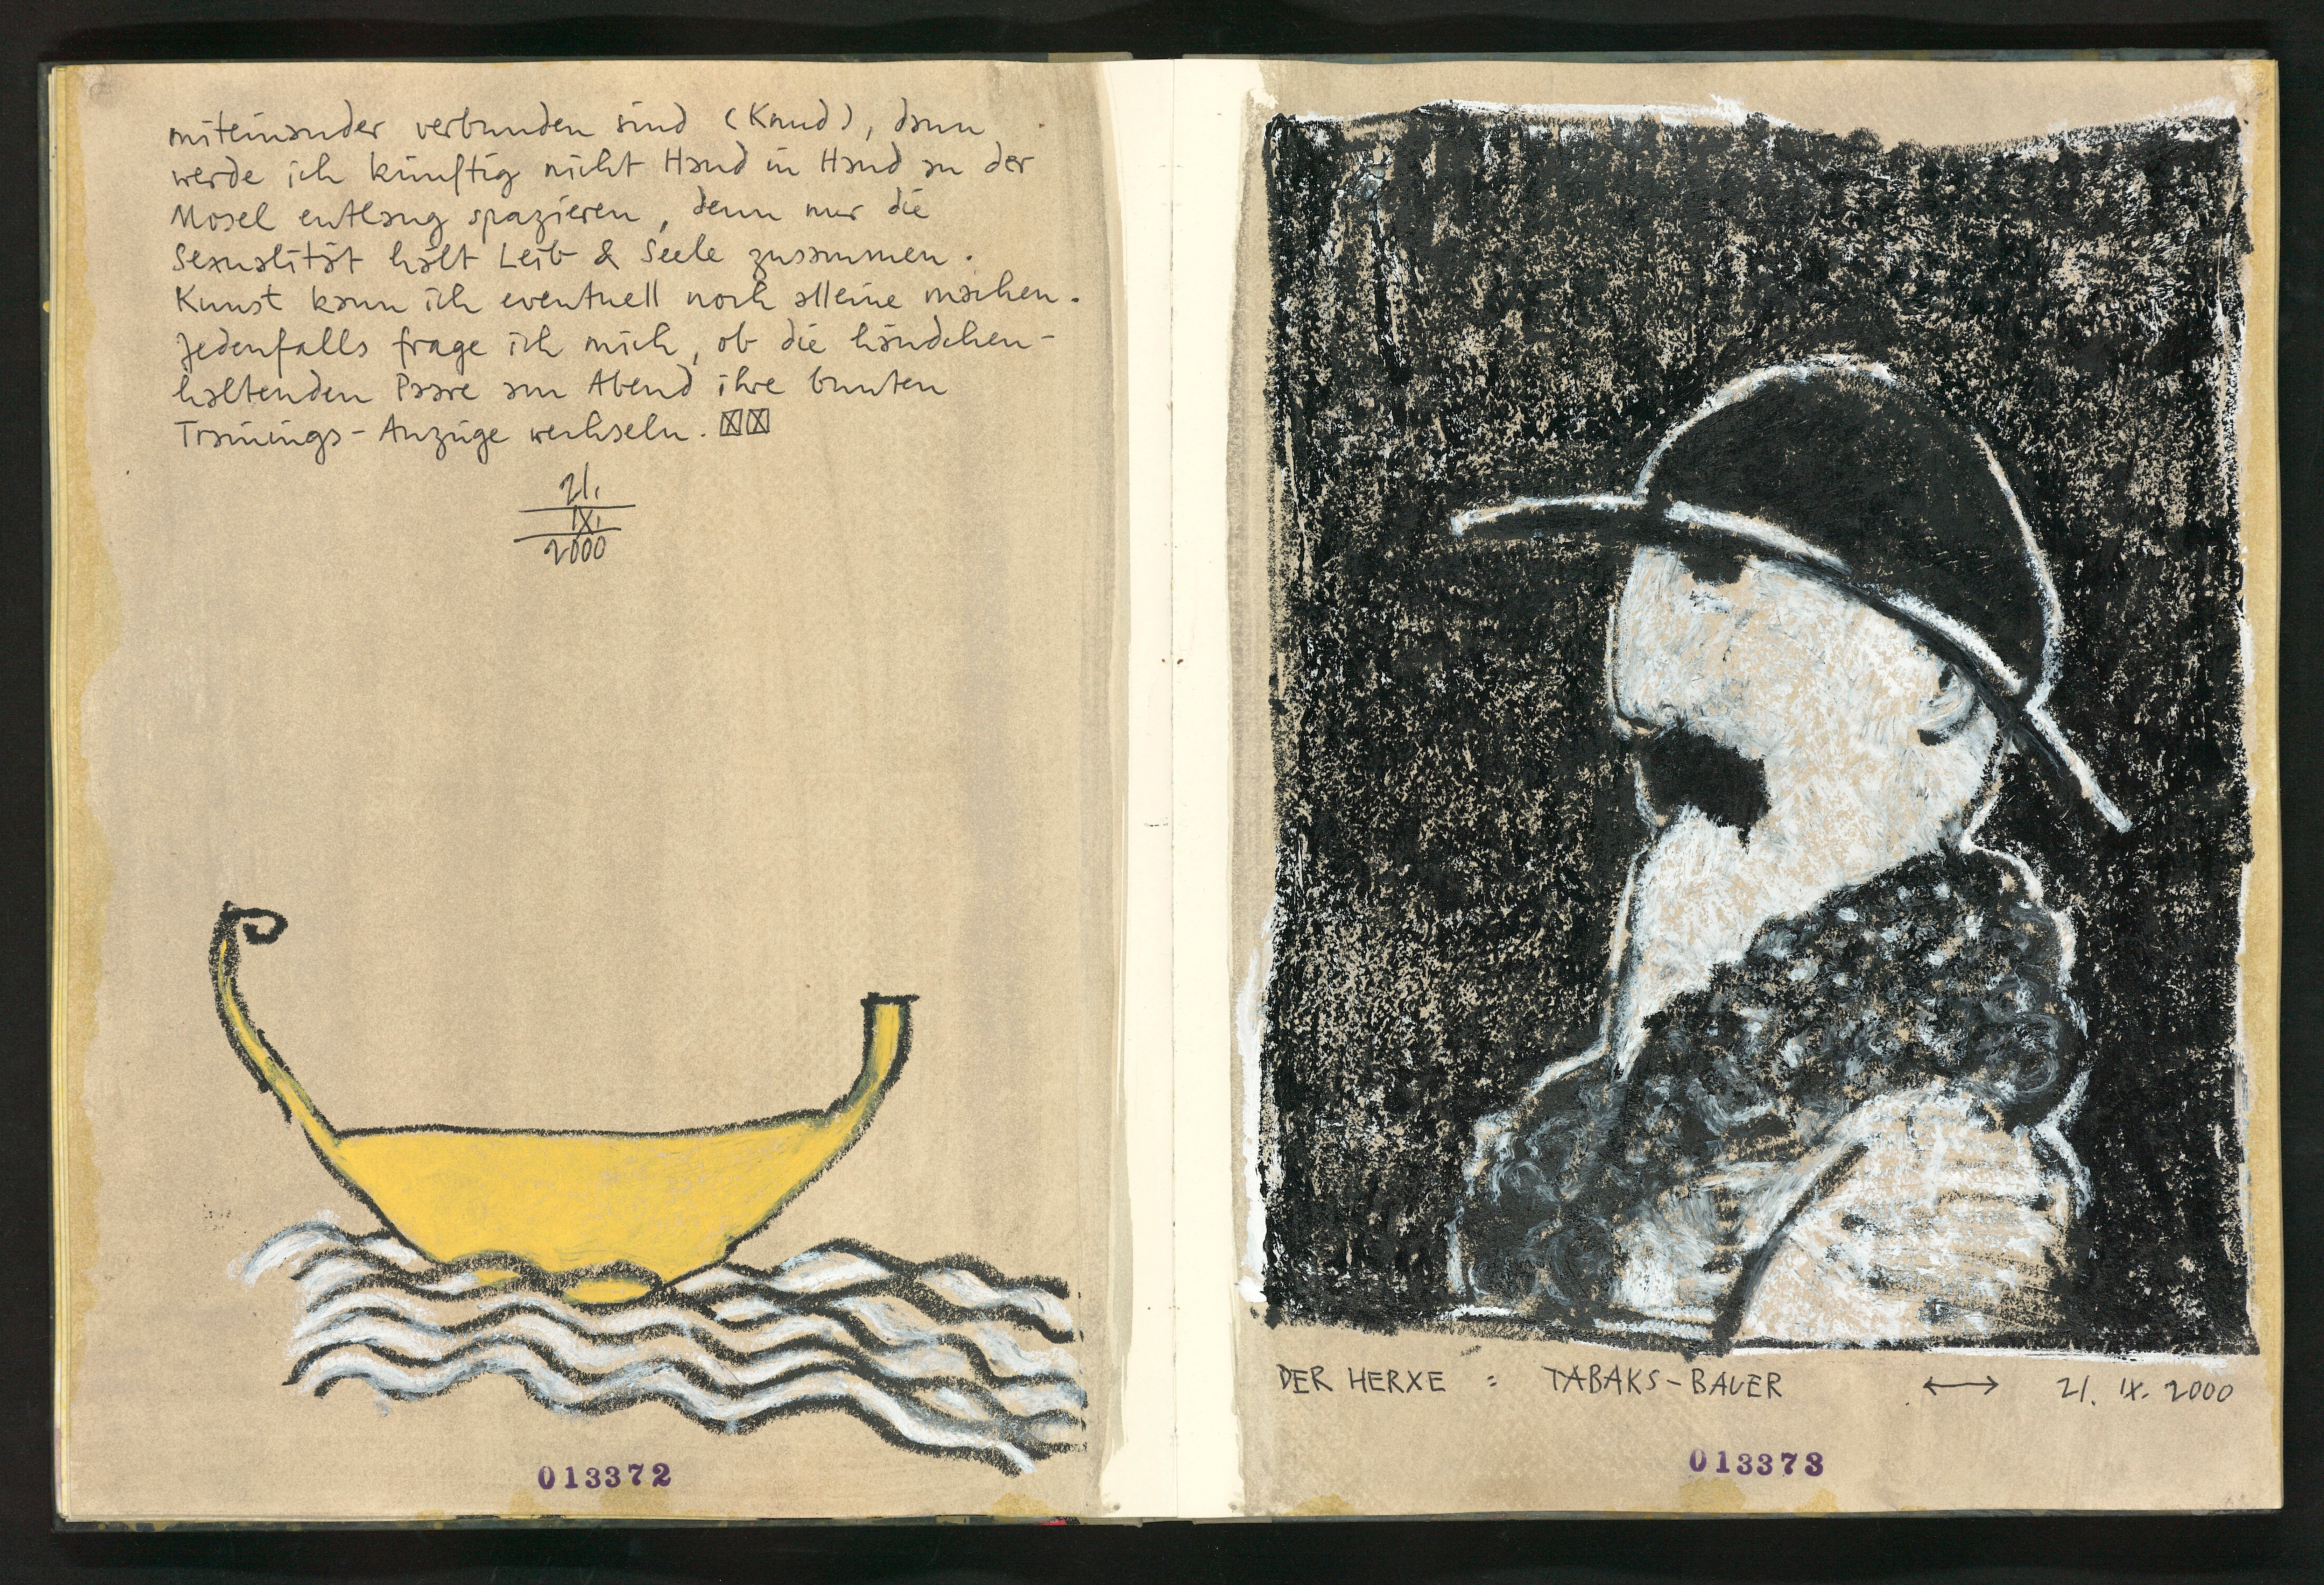 miteinander verbunden sind (Knud), dann
werde ich künftig nicht Hand in Hand an der
Mosel entlang spazieren, denn nur die
Sexualität hält Leib & Seele zusammen.
Kunst kann ich eventuell noch alleine machen.
Jedenfalls frage ich mich, ob die händchen-
haltenden Paare am Abend ihre bunten
Trainings-Anzüge wechseln.
21.
IX.
2000
013372
DER HERXE : TABAKS-BAUER ⟷ 21. IX. 2000
013373